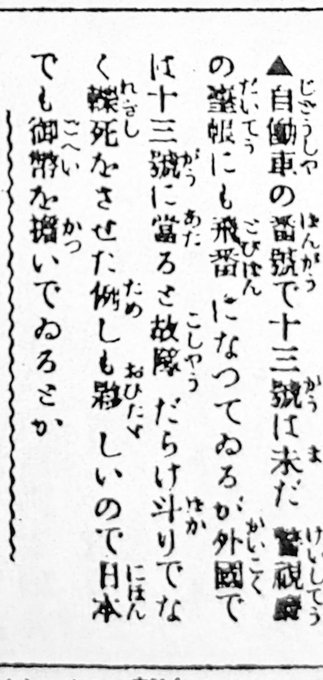 ▲自働車の番號で十三號は未だ警視廳
の臺帳にも飛番になつてゐるが外國で
は十三號に當ると故障だらけ斗りでな
く轢死をさせた例しも夥しいので日本
でも御幣を擔いでゐるとか